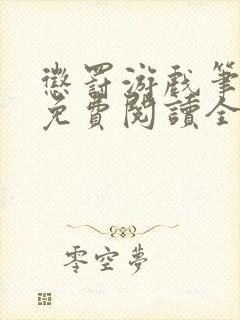 懲罰游戲筆
免費閱讀全
零空夢